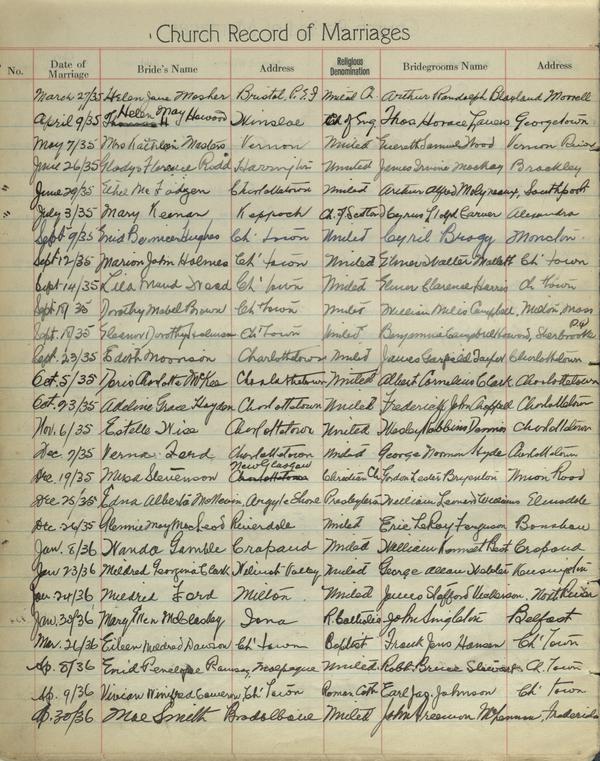 Church Record of Marriages
No. Date of Marriage Bride's Name Address Religious Denomination Bridegrooms Name Address
March 27/35 Helen Jane Mosher Bristol, P.E.I United Ch. Arthur Randolph Morell
Helen May
April 9/35 Winsloe Ch of Eng Thos. Horace Georgetown
May 7/35 Mrs Kathleen Masters Vernon United Everett Samuel Wood Vernon River
June 26/35 Gladys Florence Harrington United James Irvine MacKay Brackley
" June 29/35 Ethel Mc Fadyen Charlottetown United Arthur Alfred Molyneaux, Southport
" July 3/35 Mary Keenan Keppoch Ch. of Scotland Cyrus Lloyd Carver Alexandra
Sept 9/35 Enid Bernice Hughes Ch' town United Cyril Bragg Moncton.
Sept 12/35 Marion John Holmes Ch' town United Elmer Walter Ch' town
Sept 14/35 Lila Maud Ch' town United Elmer Clarence Harris Ch town
Sept 35 Dorothy Mabel Brown Ch' town United William Campbell, Mass
P.Q
Sept. 35 Eleanor Dorothy Ch' Town United Benjamin Campbell Howard, Sherbrooke
Oct. 23/35 Edith Charlottetown United James Garfield Charlottetown
Oct. 5/35 Doris Charlotte McKee Charlottetown United Albert Cornelius Clark Charlottetown
Oct. 23/35 Adeline Grace Haydon Charlottetown United Frederick John Charlottetown
Nov. 6/35 Estelle Wise Charlottetown United Wesley Robbins Charlottetown
Dec. 7/35 Verna Ford Charlottetown United George Norman Hyde Charlottetown
New Glasgow
Dec. 19/35 Stevenson Charlottetown Christian Ch. Gordon Lester Bryenton Union Road
Dec 25/35 Edna Alberta Argyle Shore Presbyterian William Leonard Williams Elmsdale
Dec. 26/35 Glennie May MacLeod Riverdale United Eric LeRoy Ferguson Bonshaw
Jan. 8/36 Wanda Gamble Crapaud United William Kennet Best Crapaud
Jan 23/36 Mildred Georgina Clark Valley United George Allan Webster Kensington
Jan 24/36 Mildred Ford Milton United James Stafford North River
Jan. 30/36 Mary Ellen McCloskey Iona R. Catholic John Singleton Belfast
Mar. 21/36 Eileen Mildred Dawson Ch' town Baptist Frank Jens Hansen Ch' Town
Ap. 8/36 Enid Penelope Ramsay, Malpeque United Robt. Bruce Stewart Ch. Town
Ap. 9/36 Vivian Winifred Cameron, Ch' Town Roman Cath Earl Jas. Johnson Ch' town
Ap. 30/36 Mae Smith Bradalbane United John Freeman McLennan, Fredericton